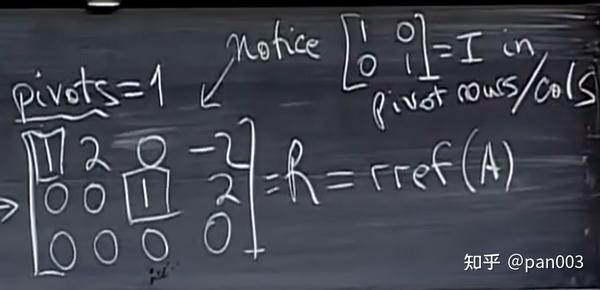 notice [1 0
0 1] = I in
pivot rows/cols
pivots=1
[1 2 0 -2
0 0 1 2
0 0 0 0] = R = rref(A)
知乎 @pan003